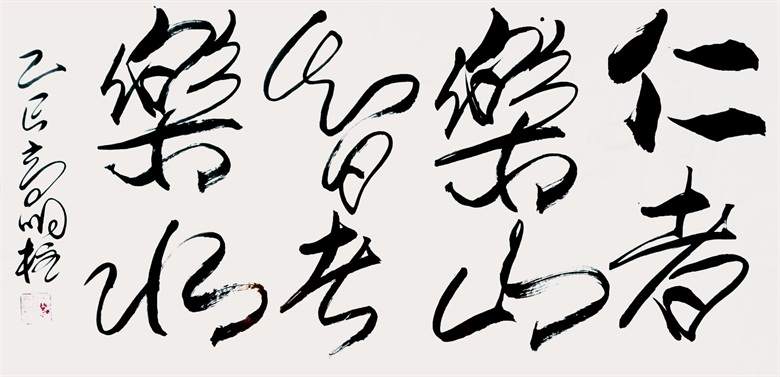 仁者
樂山
智者
樂水
乙巳高明